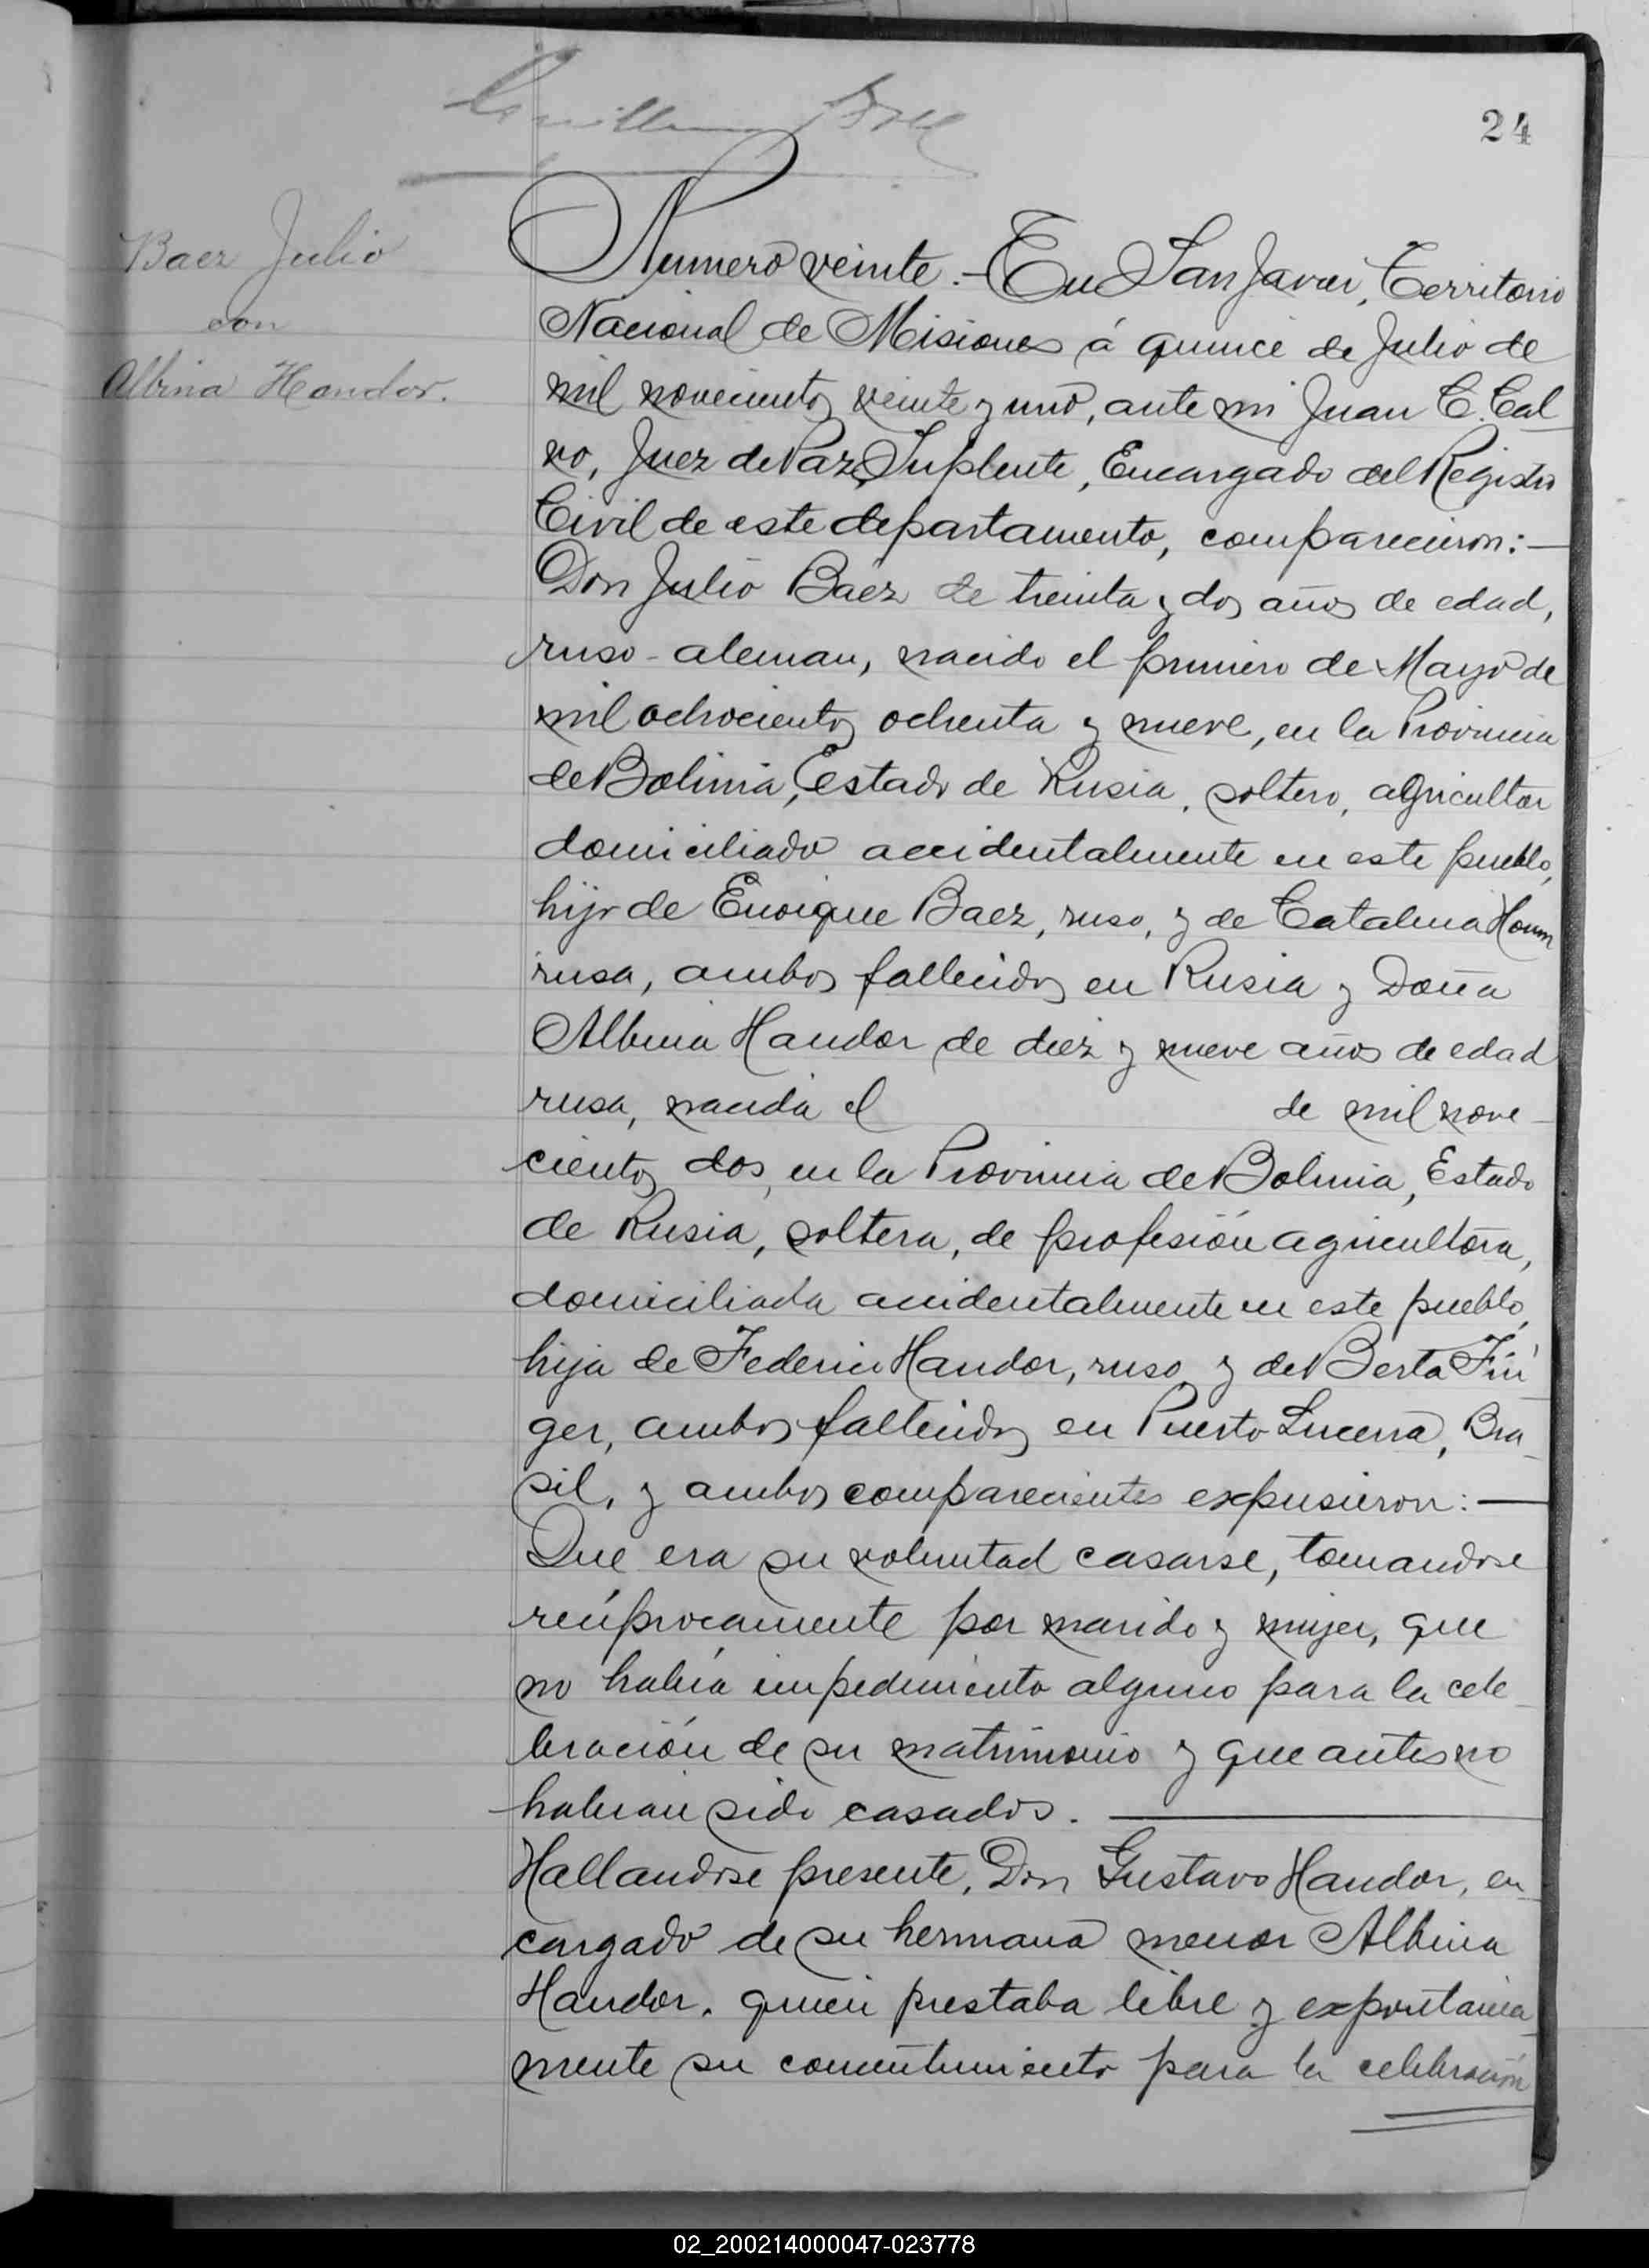 24
Baez Julio
con
Albina Handor.
Numero veinte.- En San Javier, Territorio
Nacional de Misiones á quince de Julio de
mil novecientos veinte y uno, ante mi Juan C. Cal
vo, Juez de Paz Suplente, Encargado del Registro
Civil de este departamento, comparecieron:—
Don Julio Baez de treinta y dos años de edad,
ruso-aleman, nacido el primero de Mayo de
mil ochocientos ochenta y nueve, en la Provincia
de Bolinia, Estado de Rusia, soltero, agricultor
domiciliado accidentalmente en este pueblo,
hijo de Enrique Baez, ruso, y de Catalina
rusa, ambos fallecidos en Rusia y Doña
Albina Handor de diez y nueve años de edad
rusa, nacida el de mil nove-
cientos dos, en la Provincia de Bolinia, Estado
de Rusia, soltera, de profesión agricultora,
domiciliada accidentalmente en este pueblo,
hija de Federico Handor, ruso y de Berta Fin-
ger, ambos fallecidos en Puerto Lucena, Bra-
sil, y ambos comparecientes expusieron:—
Que era su voluntad casarse, tomandose
recíprocamente por marido y mujer, que
no había impedimento alguno para la cele-
bración de su matrimonio y que antes no
habían sido casados.
Hallandose presente, Don Gustavo Handor, en-
cargado de su hermana menor Albina
Handor, quien prestaba libre y expontanea-
mente su consentimiento para la celebración
02_200214000047-023778